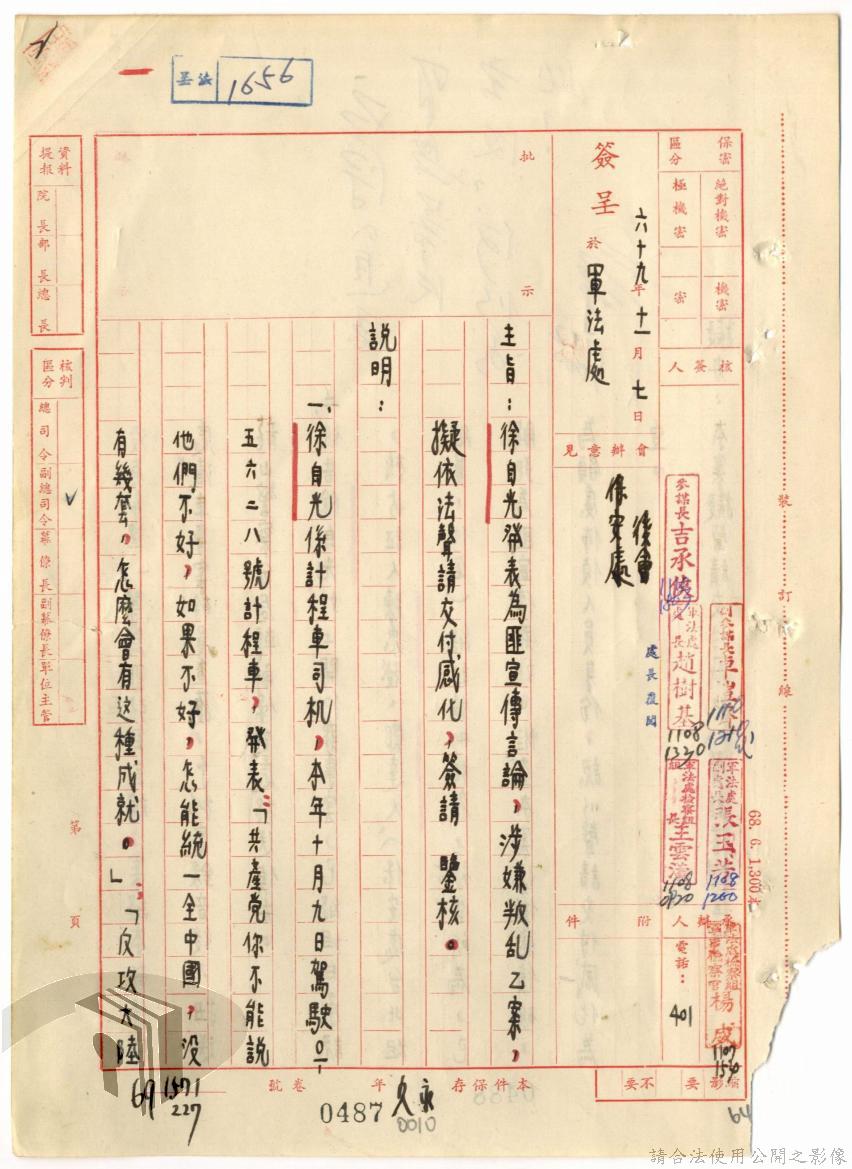 呈法
1656
保密區分
絕對機密
機密
極機密
密
簽呈
六十九年十一月七日
於軍法處
核簽人
會辦意見
後會
保安處
處長
參謀長吉承
軍法處處長趙樹基
1108
1330
軍法處檢察組組長王雲
1108
0920
軍法處副處長張玉
1108
1200
軍法處檢察組
軍事檢察官楊
1107
1530
承辦人
電話：401
附件
縮影
要
不要
批示
主旨：徐自光發表為匪宣傳言論，涉嫌叛乱乙案，
擬依法聲請交付感化，簽請　鑒核。
說明：
一、徐自光係計程車司机，本年十月九日駕駛０一
五六二八號計程車，發表「共產党你不能說
他們不好，如果不好，怎能統一全中國，沒
有幾套，怎麼會有这種成就。」「反攻大陸
資料提報
院長
部長
總長
核判區分
總司令
副總司令
幕僚長
副幕僚長
單位主管
第
頁
裝
訂
線
68.6.1,300本
本件保存
永久
年
卷號
0010
0487
69
1571
227
64
請合法使用公開之影像